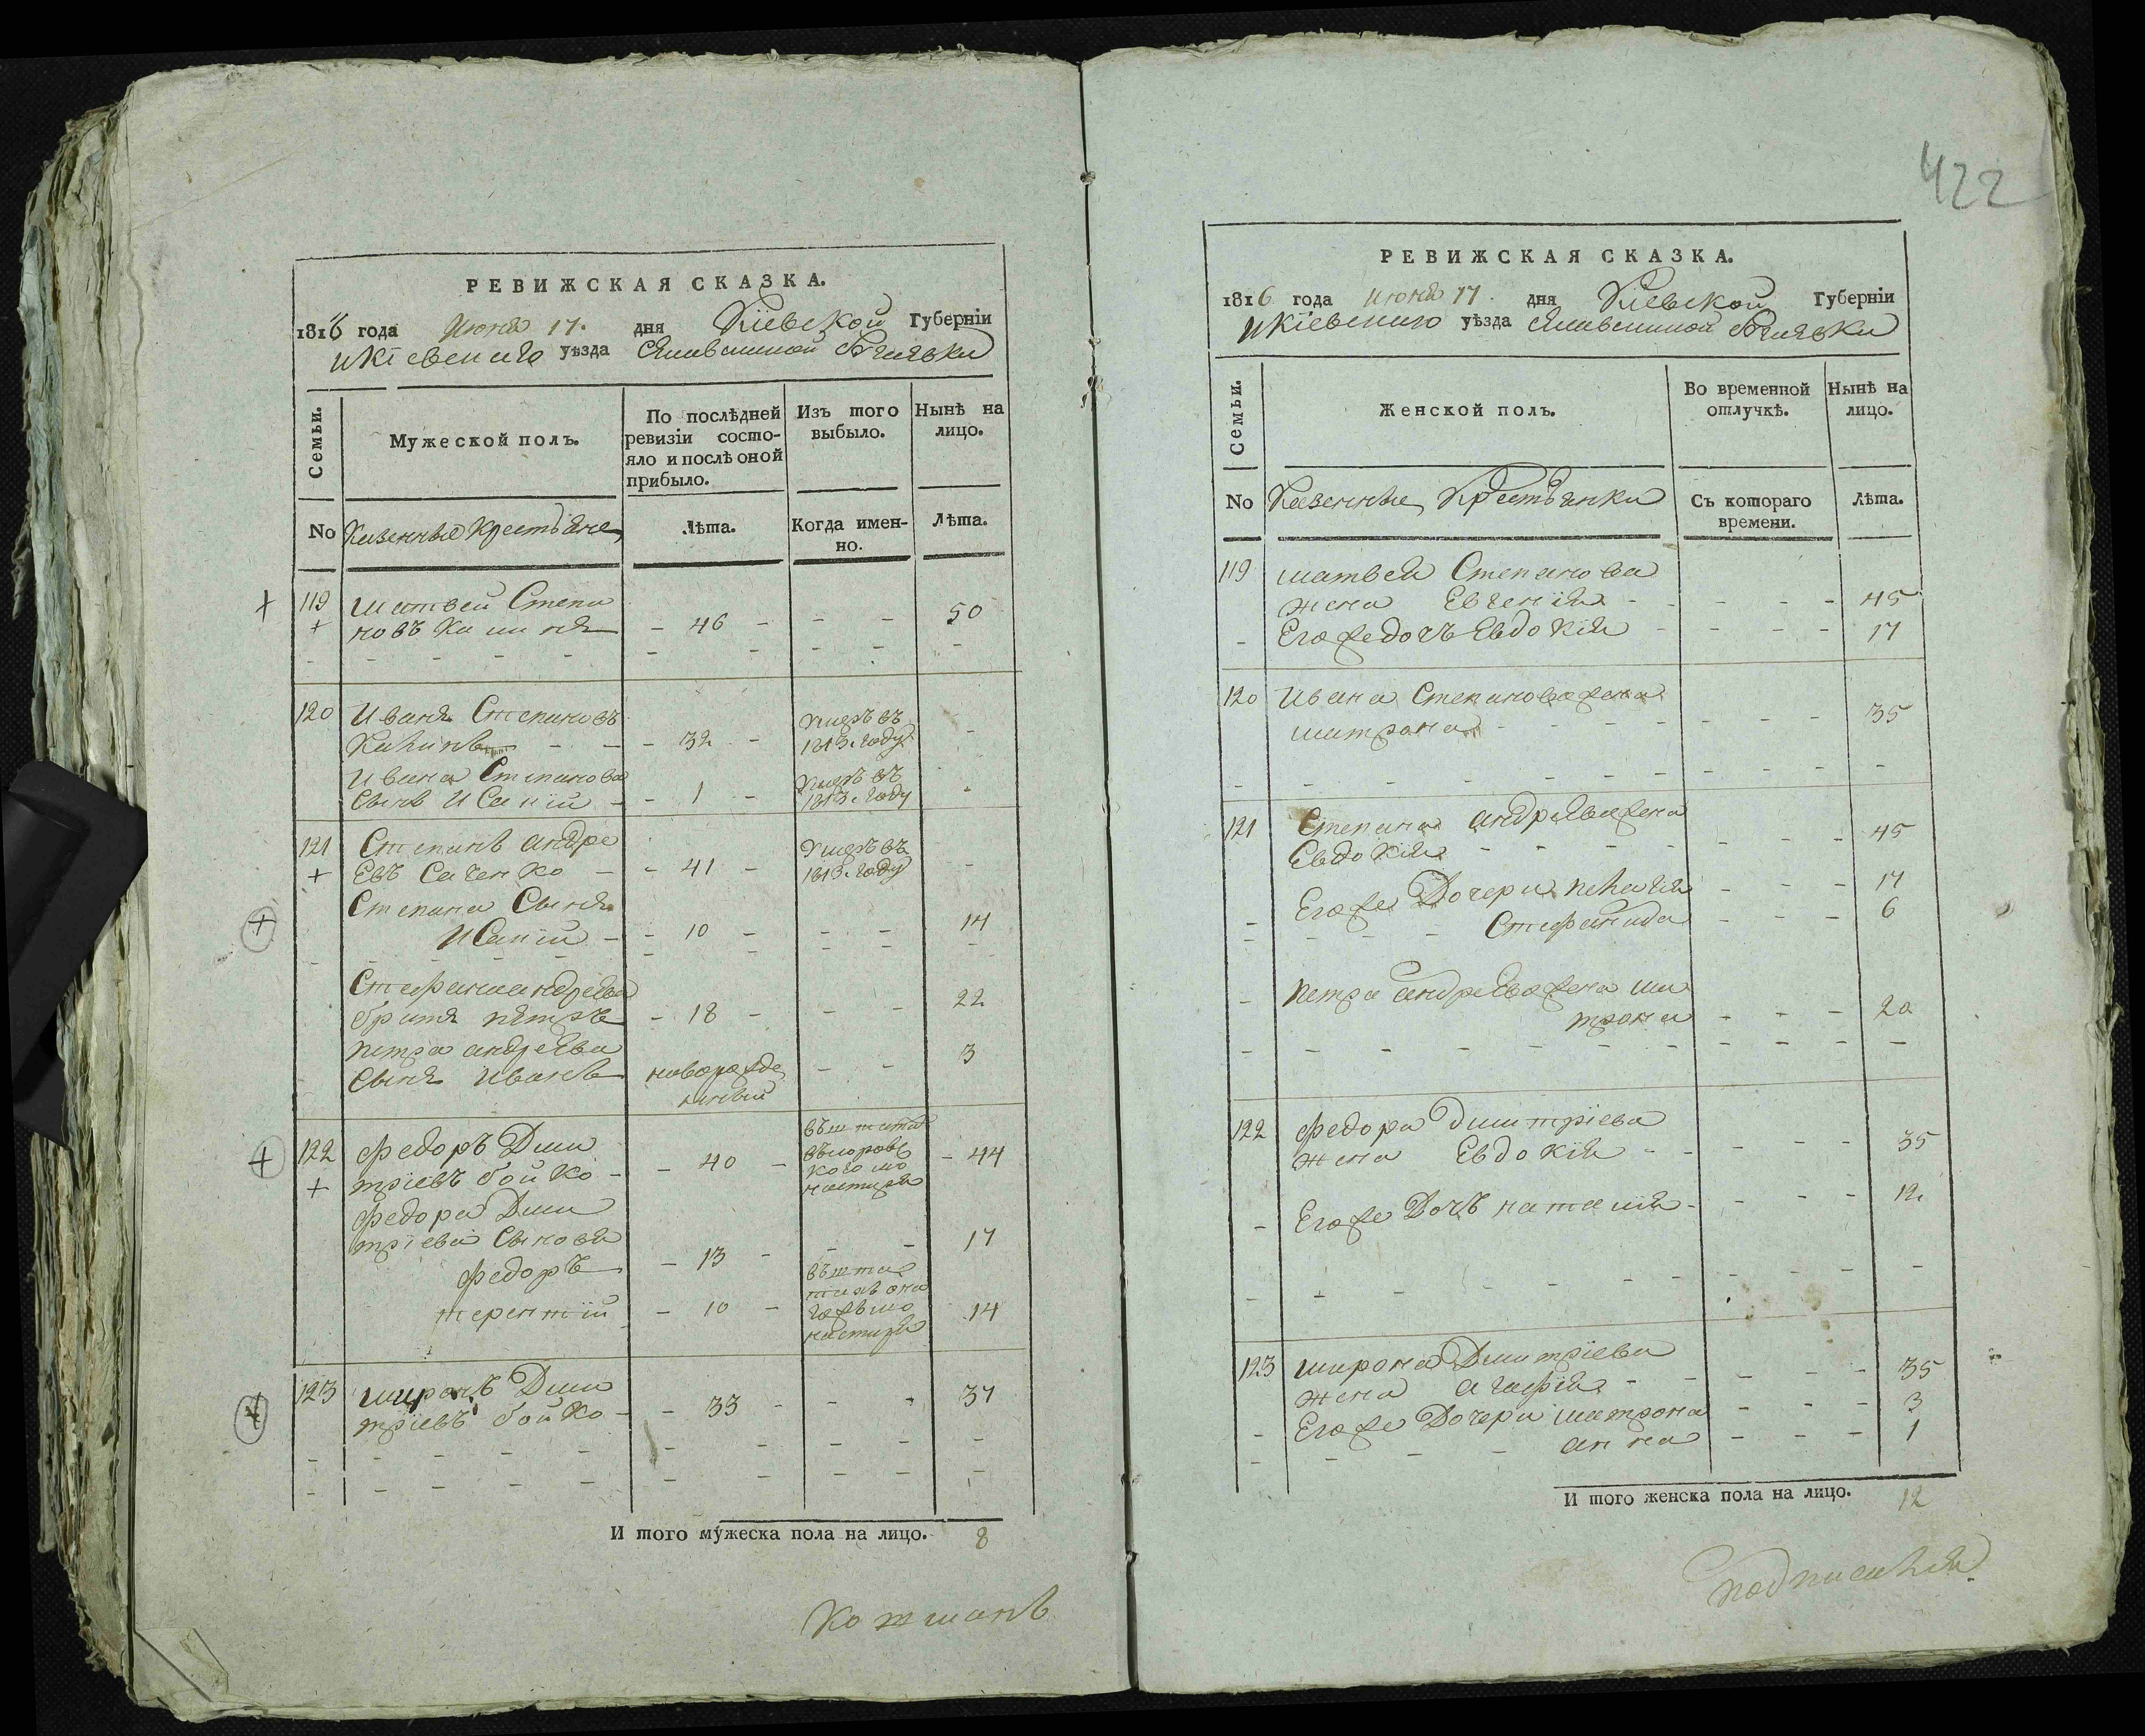 422
РЕВИЖСКАЯ СКАЗКА.
1816 года Июня 17. дня Кіевской Губерніи
и Кіевскаго уѣзда
По послѣдней ревизіи состо-
яло и послѣ оной
прибыло.
Изъ того
выбыло.
Нынѣ на
лицо.
Семьи.
Мужеской полъ.
No Казенные Крестьяне
Лѣта.
Когда имен-
но.
Лѣта.
119 Матвей Степа
новъ - 46 - - - 50
120 Иванъ Степановъ
- 32 - умеръ въ
1813. году
Ивана Степанова
Сынъ Исакій - 1 - умеръ въ
1813. году
121 Степанъ андре
евъ Саченко - 41 - умеръ въ
1813. году
Степана Сынъ
Исакій - 10 - - - 14
братъ петръ - 18 - - - 22
петра андреева
Сынъ иванъ новорожде
нный - - 3
122 Федоръ Дми
тріевъ бойко - 40 - - 44
Федора Дми
тріева Сыновя
федоръ - 13 - - - 17
терентій - 10 - 14
123 миронъ Дми
тріевъ бойко - 33 - - - 37
И того мужеска пола на лицо. 8
РЕВИЖСКАЯ СКАЗКА.
1816 года Июня 17. дня Кіевской Губерніи
и Кіевскаго уѣзда
Семьи.
Женской полъ.
Во временной
отлучкѣ.
Нынѣ на
лицо.
No Казенные Крестьянки
Съ котораго
времени.
Лѣта.
119 матвея Степанова
жена Евгенія - - - - 45
Егоже дочь Евдокія - - - - 17
120 Ивана Степанова жена
матрона - - - - 35
121 Степана андреева жена
Евдокія - - - - 45
Егоже Дочери пелагія - - - 17
Стефанида - - - 6
петра андреева жена ма
трона - - - 20
122 федора дмитріева
жена Евдокія - - - - 35
Егоже Дочь наталія - - - - 12
123 мирона Дмитріева
жена агафія - - - - 35
Егоже Дочери матрона - - - 3
анна - - - 1
И того женска пола на лицо. 12